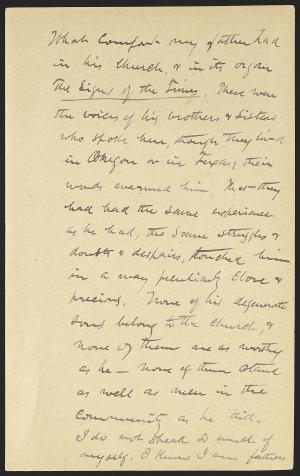 What comfort my father had
in his church, & in its organ
the Signs of the Times. These were
the voices of his brothers & sisters
who spoke here, though they lived
in Oregon or in Texas, their
words warmed him. That they
had had the same experience
as he had, the same struggles &
doubts & despairs, touched him
in a way peculiarly close &
precious. None of his degenerate
sons belong to the church, &
none of them are as worthy
as he — none of them stand
as well as men in the
community as he did.
I do not speak so much of
myself. I know I am father's